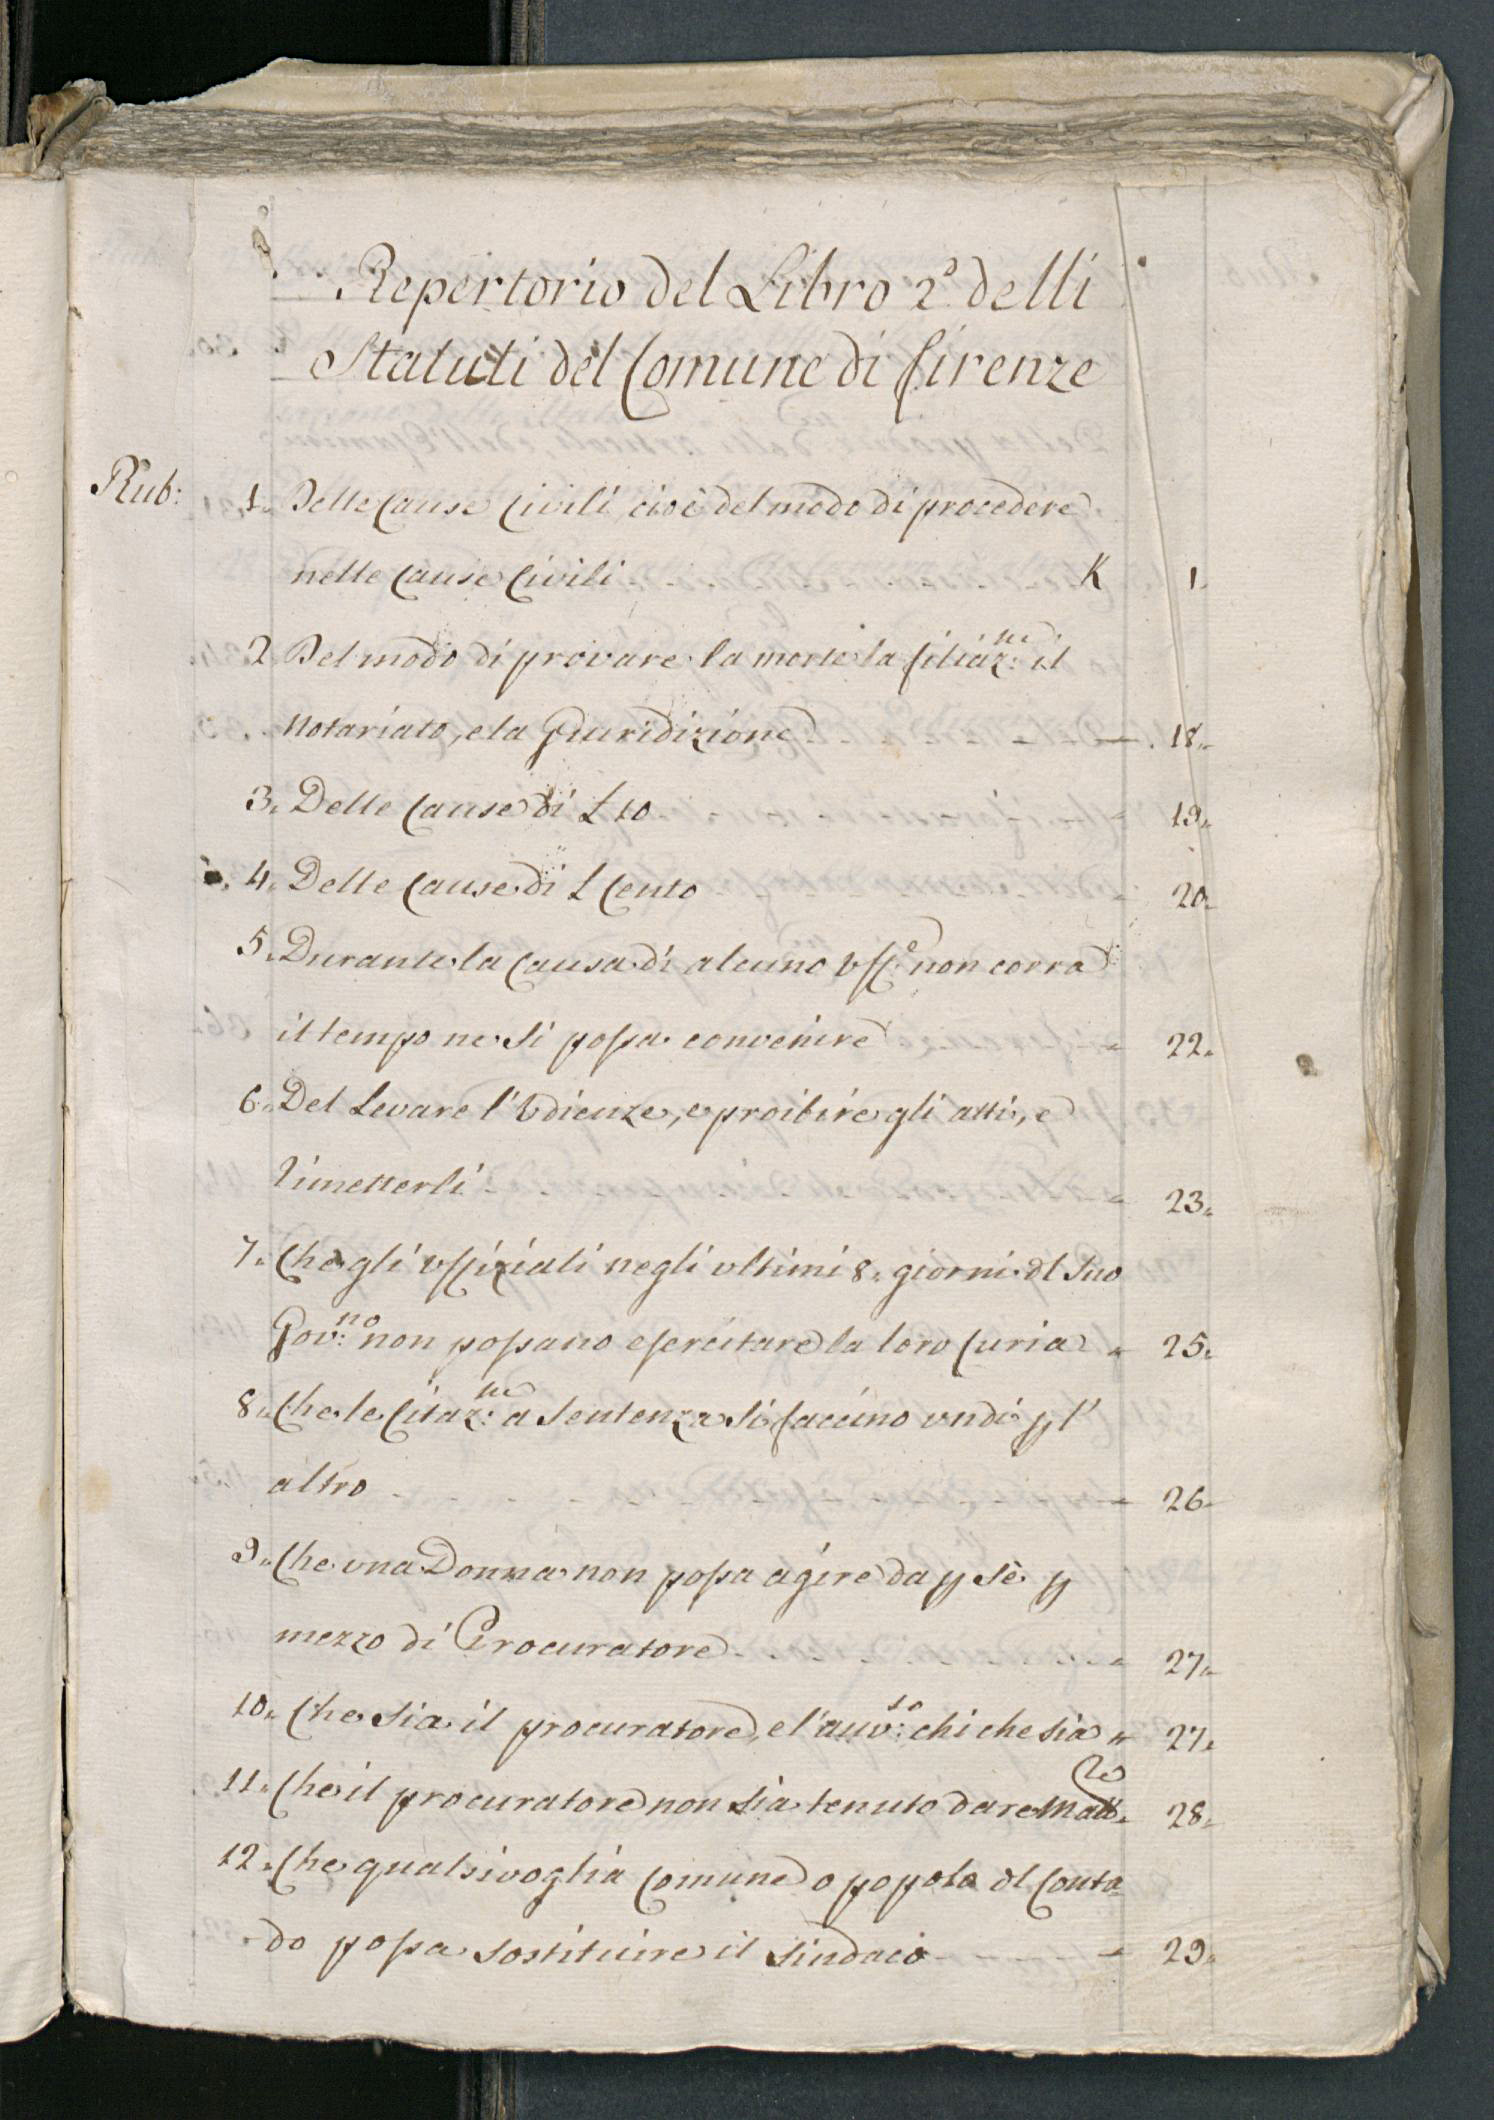 Repertorio del Libro 2.° delli
Statuti del Comune di Firenze
Rub: 1. Delle Cause Civili cioè del modo di procedere
nelle Cause Civili - - - - - K 1.
2 Del modo di provare la morte la filiaz:ne il
Notariato, e la Giuridizione - - - - 18.
3. Delle Cause di L 10 19.
4. Delle Cause di L Cento 20.
5. Durante la Causa di alcuno Uff:e non corra
il tempo ne si possa convenire 22.
6. Del Levare l'Udienze, e proibire gli atti, e
rimetterli - - - - - 23.
7. Che gli uffiziali negli ultimi 8. giorni dl suo
Gov:no non possano esercitare la loro Curia 25.
8. Che le Citaz:ne a sentenza si faccino un dì p l'
altro - - - - - 26.
9. Che una Donna non possa agire da p sè p
mezzo di Procuratore - - - - 27.
10. Che sia il procuratore, e l'avv:to chi che sia 27.
11. Che il procuratore non sia tenuto dare 28.
12. Che qualsivoglia Comune o popolo dl Conta-
do possa sostituire il sindaco - - - 29.